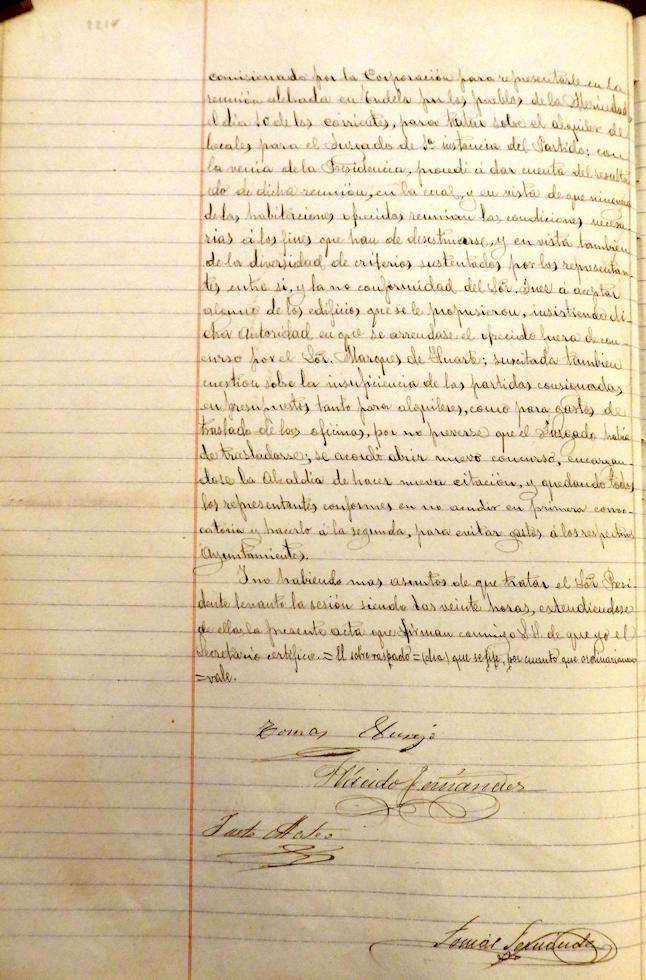 comisionado por la Corporación para representarle en la
reunión celebrada en Tudela por los pueblos de la Merindad
el dia 10 de los corrientes, para tratar sobre el alquiler de
locales para el Juzgado de 1ª instancia del Partido; con
la venia de la Presidencia, procedi á dar cuenta del resulta
do de dicha reunion, en la cual, y en vista de que ninguna
de las habitaciones ofrecidas reunian las condiciones necesa-
rias á los fines que han de destinarse, y en vista tambien
de la diversidad de criterios sustentados por los representan-
tes entre si, y la no conformidad del Sór. Juez á aceptar
alguno de los edificios que se le propusieron, insistiendo di-
cha Autoridad en que se arrendase el ofrecido fuera de con-
curso por el Sór. Marques de Huarte; suscitada tambien
cuestion sobre la insuficiencia de las partidas consignadas
en presupuestos tanto para alquileres, como para gastos de
traslado de las oficinas, por no preverse que el Juzgado habia
de trasladarse; se acordó abrir nuevo concurso, encargan-
dose la Alcaldia de hacer nueva citación, y quedando todos
los representantes conformes en no acudir en primera convo-
catoria y hacerlo á la segunda, para evitar gastos á los respectivos
Ayuntamientos.
Y no habiendo mas asuntos de que tratar el Sór. Presi-
dente levantó la sesión siendo las veinte horas, extendiendose
de ella la presente acta que firman conmigo S.S. de que yo el
Secretario certifico. = El sobre raspado = (dias) que se fije, por cuanto que
= vale.
Tomas
Plácido Fernández
Justo Mateo
Tomás Fernández